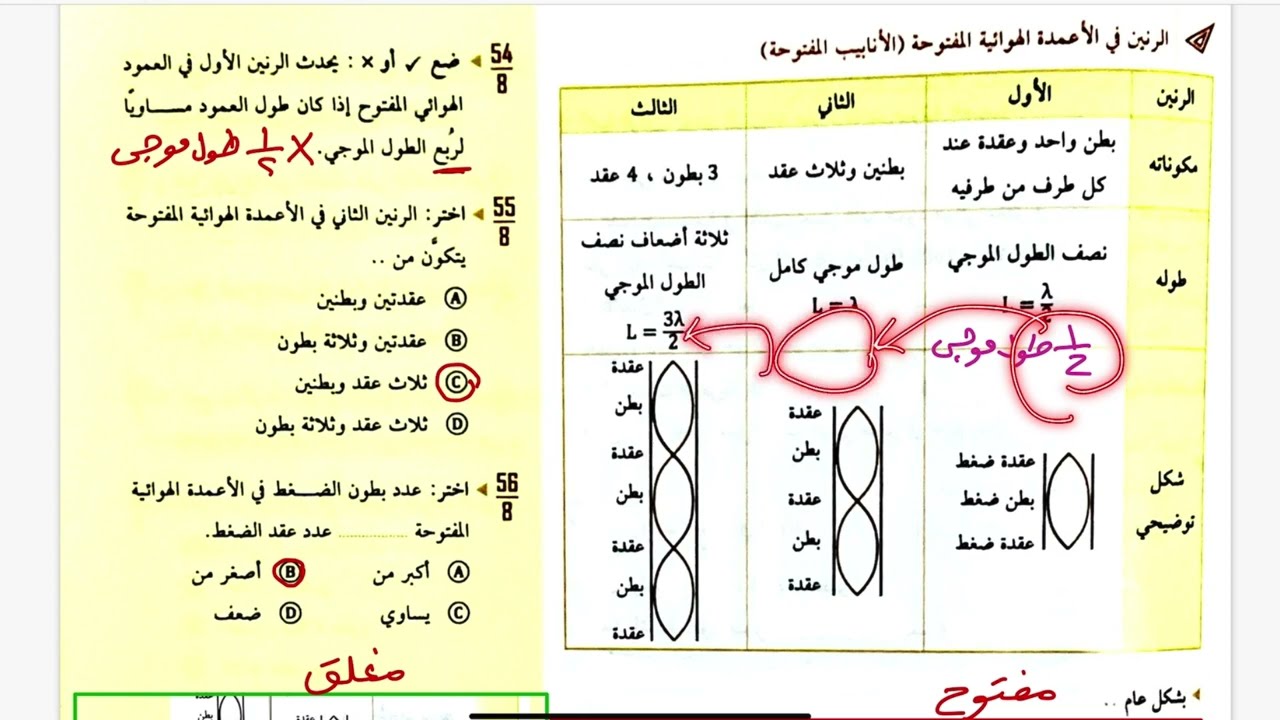 الرنين في الأعمدة الهوائية المفتوحة (الأنابيب المفتوحة)
الرنين
الأول
الثاني
الثالث
مكوناته
بطن واحد وعقدة عند
كل طرف من طرفيه
بطنين وثلاث عقد
3 بطون ، 4 عقد
طوله
نصف الطول الموجي
L = λ
1/2 طول موجي
طول موجي كامل
L = λ
ثلاثة أضعاف نصف
الطول الموجي
L = 3λ/2
شكل
توضيحي
عقدة ضغط
بطن ضغط
عقدة ضغط
عقدة
بطن
عقدة
بطن
عقدة
عقدة
بطن
عقدة
بطن
عقدة
بطن
عقدة
بشكل عام ..
مفتوح
54/8
ضع ✓ أو × : يحدث الرنين الأول في العمود
الهوائي المفتوح إذا كان طول العمود مساويًا
لرُبع الطول الموجي. X 1/2 طول موجي
55/8
اختر: الرنين الثاني في الأعمدة الهوائية المفتوحة
يتكوَّن من ..
A عقدتين وبطنين
B عقدتين وثلاثة بطون
C ثلاث عقد وبطنين
D ثلاث عقد وثلاثة بطون
56/8
اختر: عدد بطون الضغط في الأعمدة الهوائية
المفتوحة ............ عدد عقد الضغط.
A أكبر من
B أصغر من
C يساوي
D ضعف
مغلق
بطن